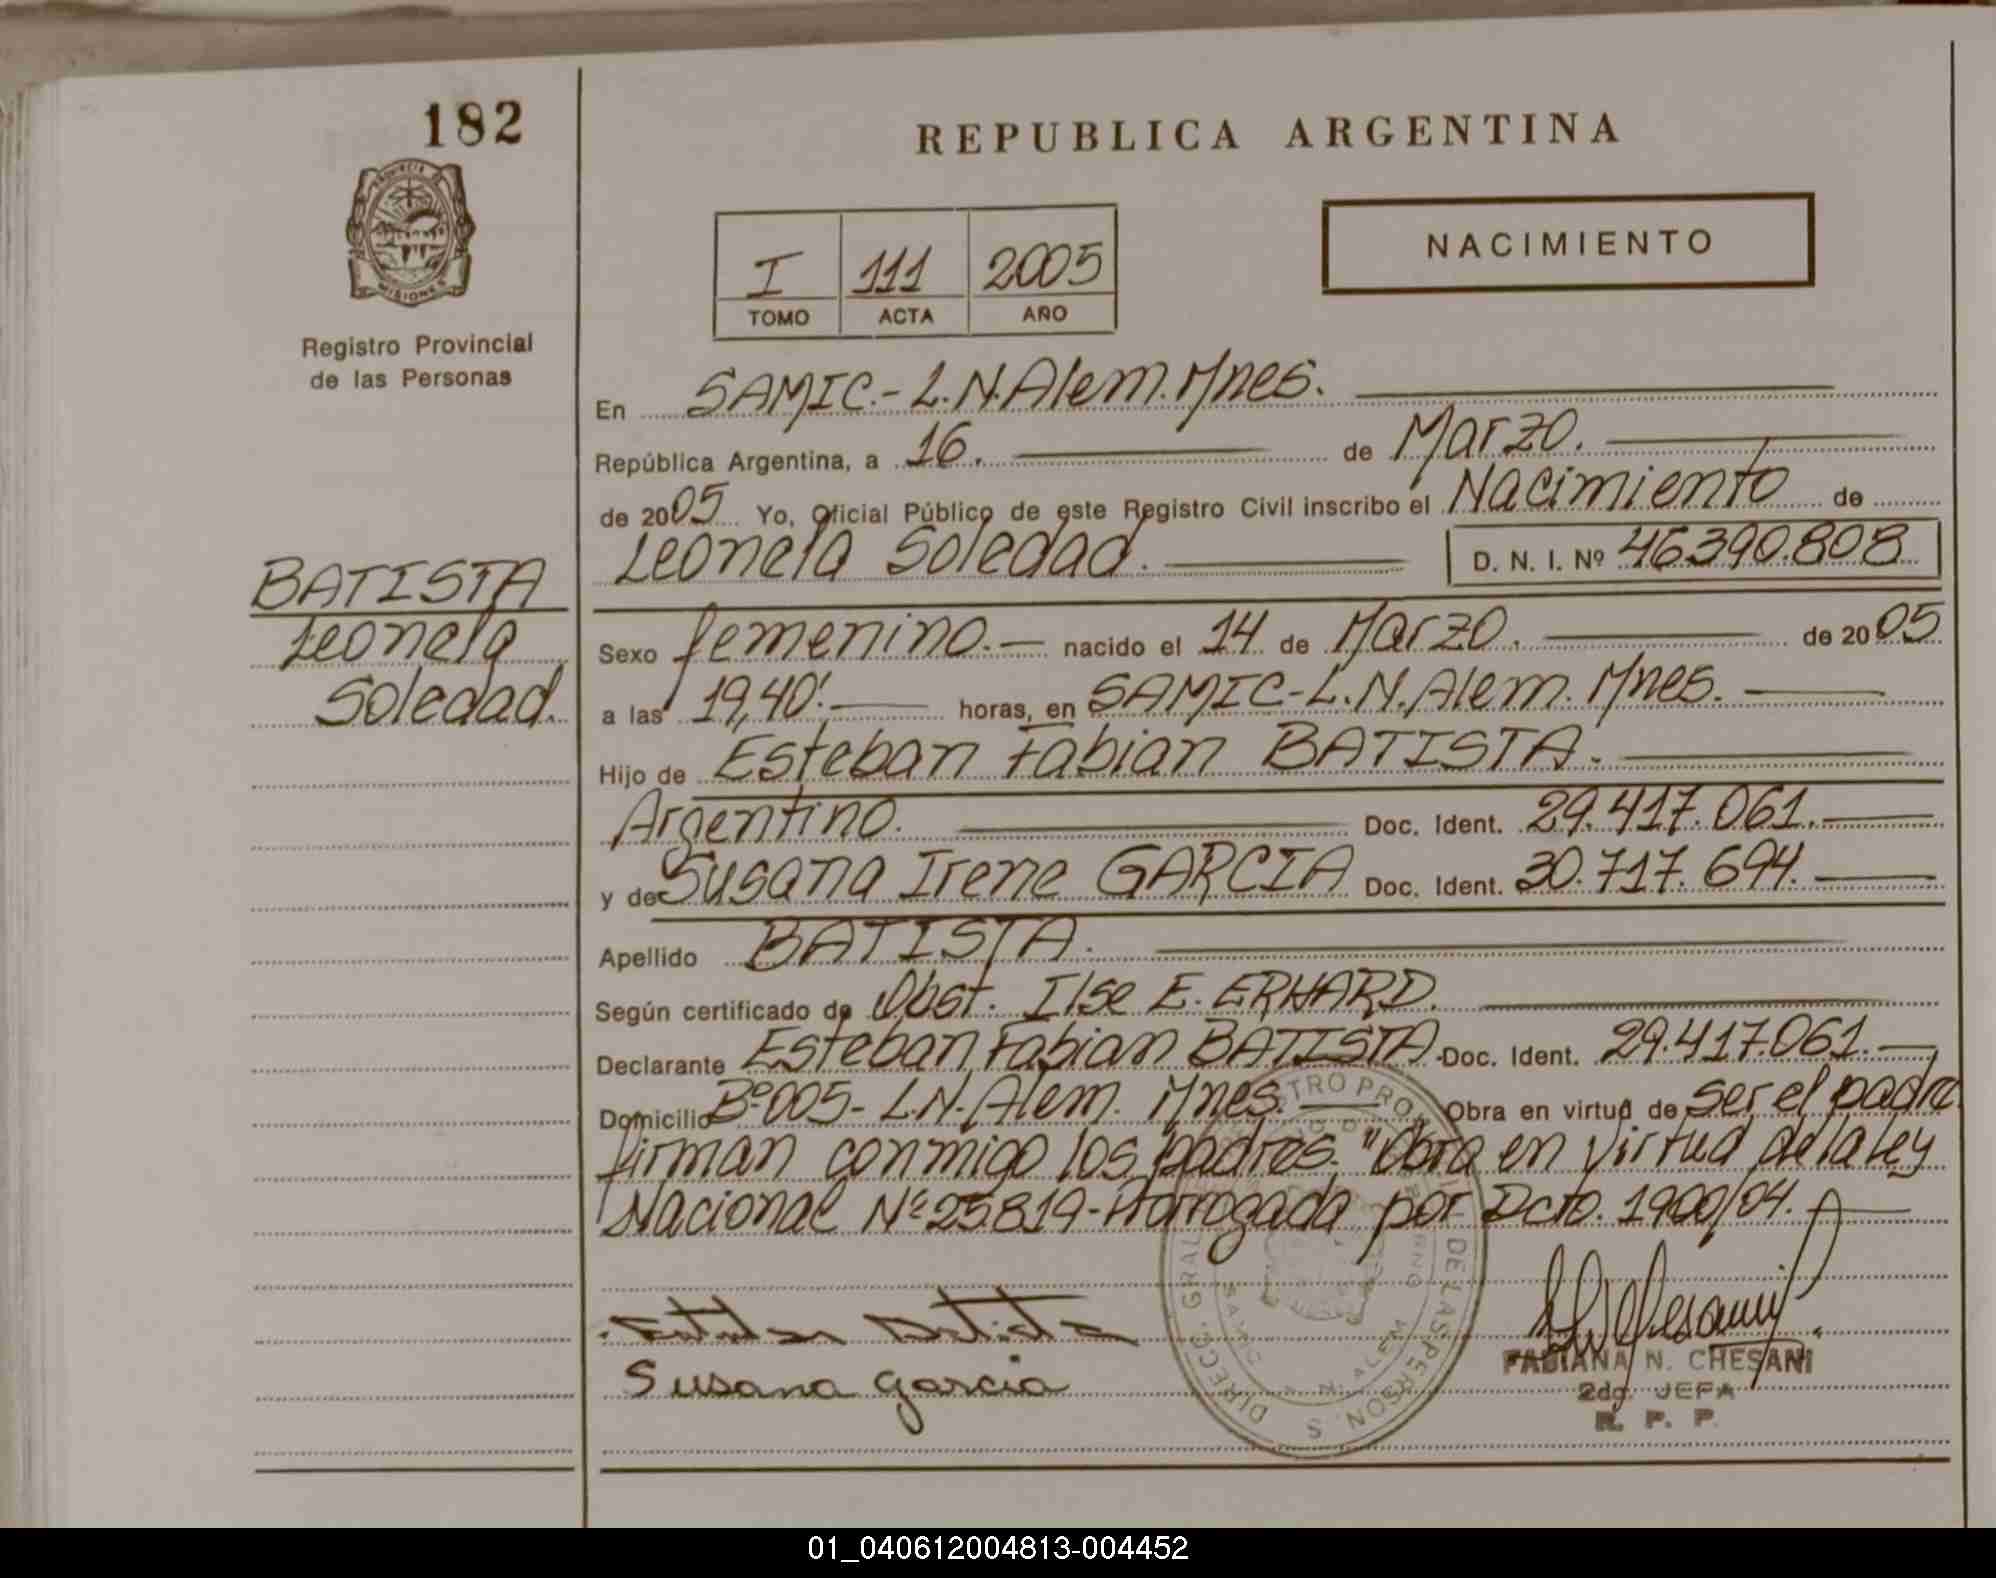 182
PROVINCIA DE
MISIONES
Registro Provincial
de las Personas
BATISTA
Leonela
Soledad.
REPUBLICA ARGENTINA
NACIMIENTO
I 111 2005
TOMO ACTA AÑO
En SAMIC.- L.N.Alem.Mnes.
República Argentina, a 16. de Marzo.
de 2005 Yo, Oficial Público de este Registro Civil inscribo el Nacimiento de
Leonela Soledad. D. N. I. Nº 46.390.808
Sexo femenino.- nacido el 14 de Marzo. de 2005
a las 19,40'. horas, en SAMIC-L.N.Alem. Mnes.
Hijo de Esteban Fabian BATISTA.
Argentino. Doc. Ident. 29.417.061.
y de Susana Irene GARCIA Doc. Ident. 30.717.694.
Apellido BATISTA.
Según certificado de Obst. Ilse E. ERHARD.
Declarante Esteban Fabian BATISTA. Doc. Ident. 29.417.061.
Domicilio Bº 005- L.N.Alem. Mnes. Obra en virtud de ser el padre
firman conmigo los padres. "Obra en virtud de la ley
Nacional Nº 25819-Prorrogada por Dcto. 1900/04.
Esteban Batista
Susana Garcia
FABIANA N. CHESANI
2da. JEFA
R. P. P.
01_040612004813-004452